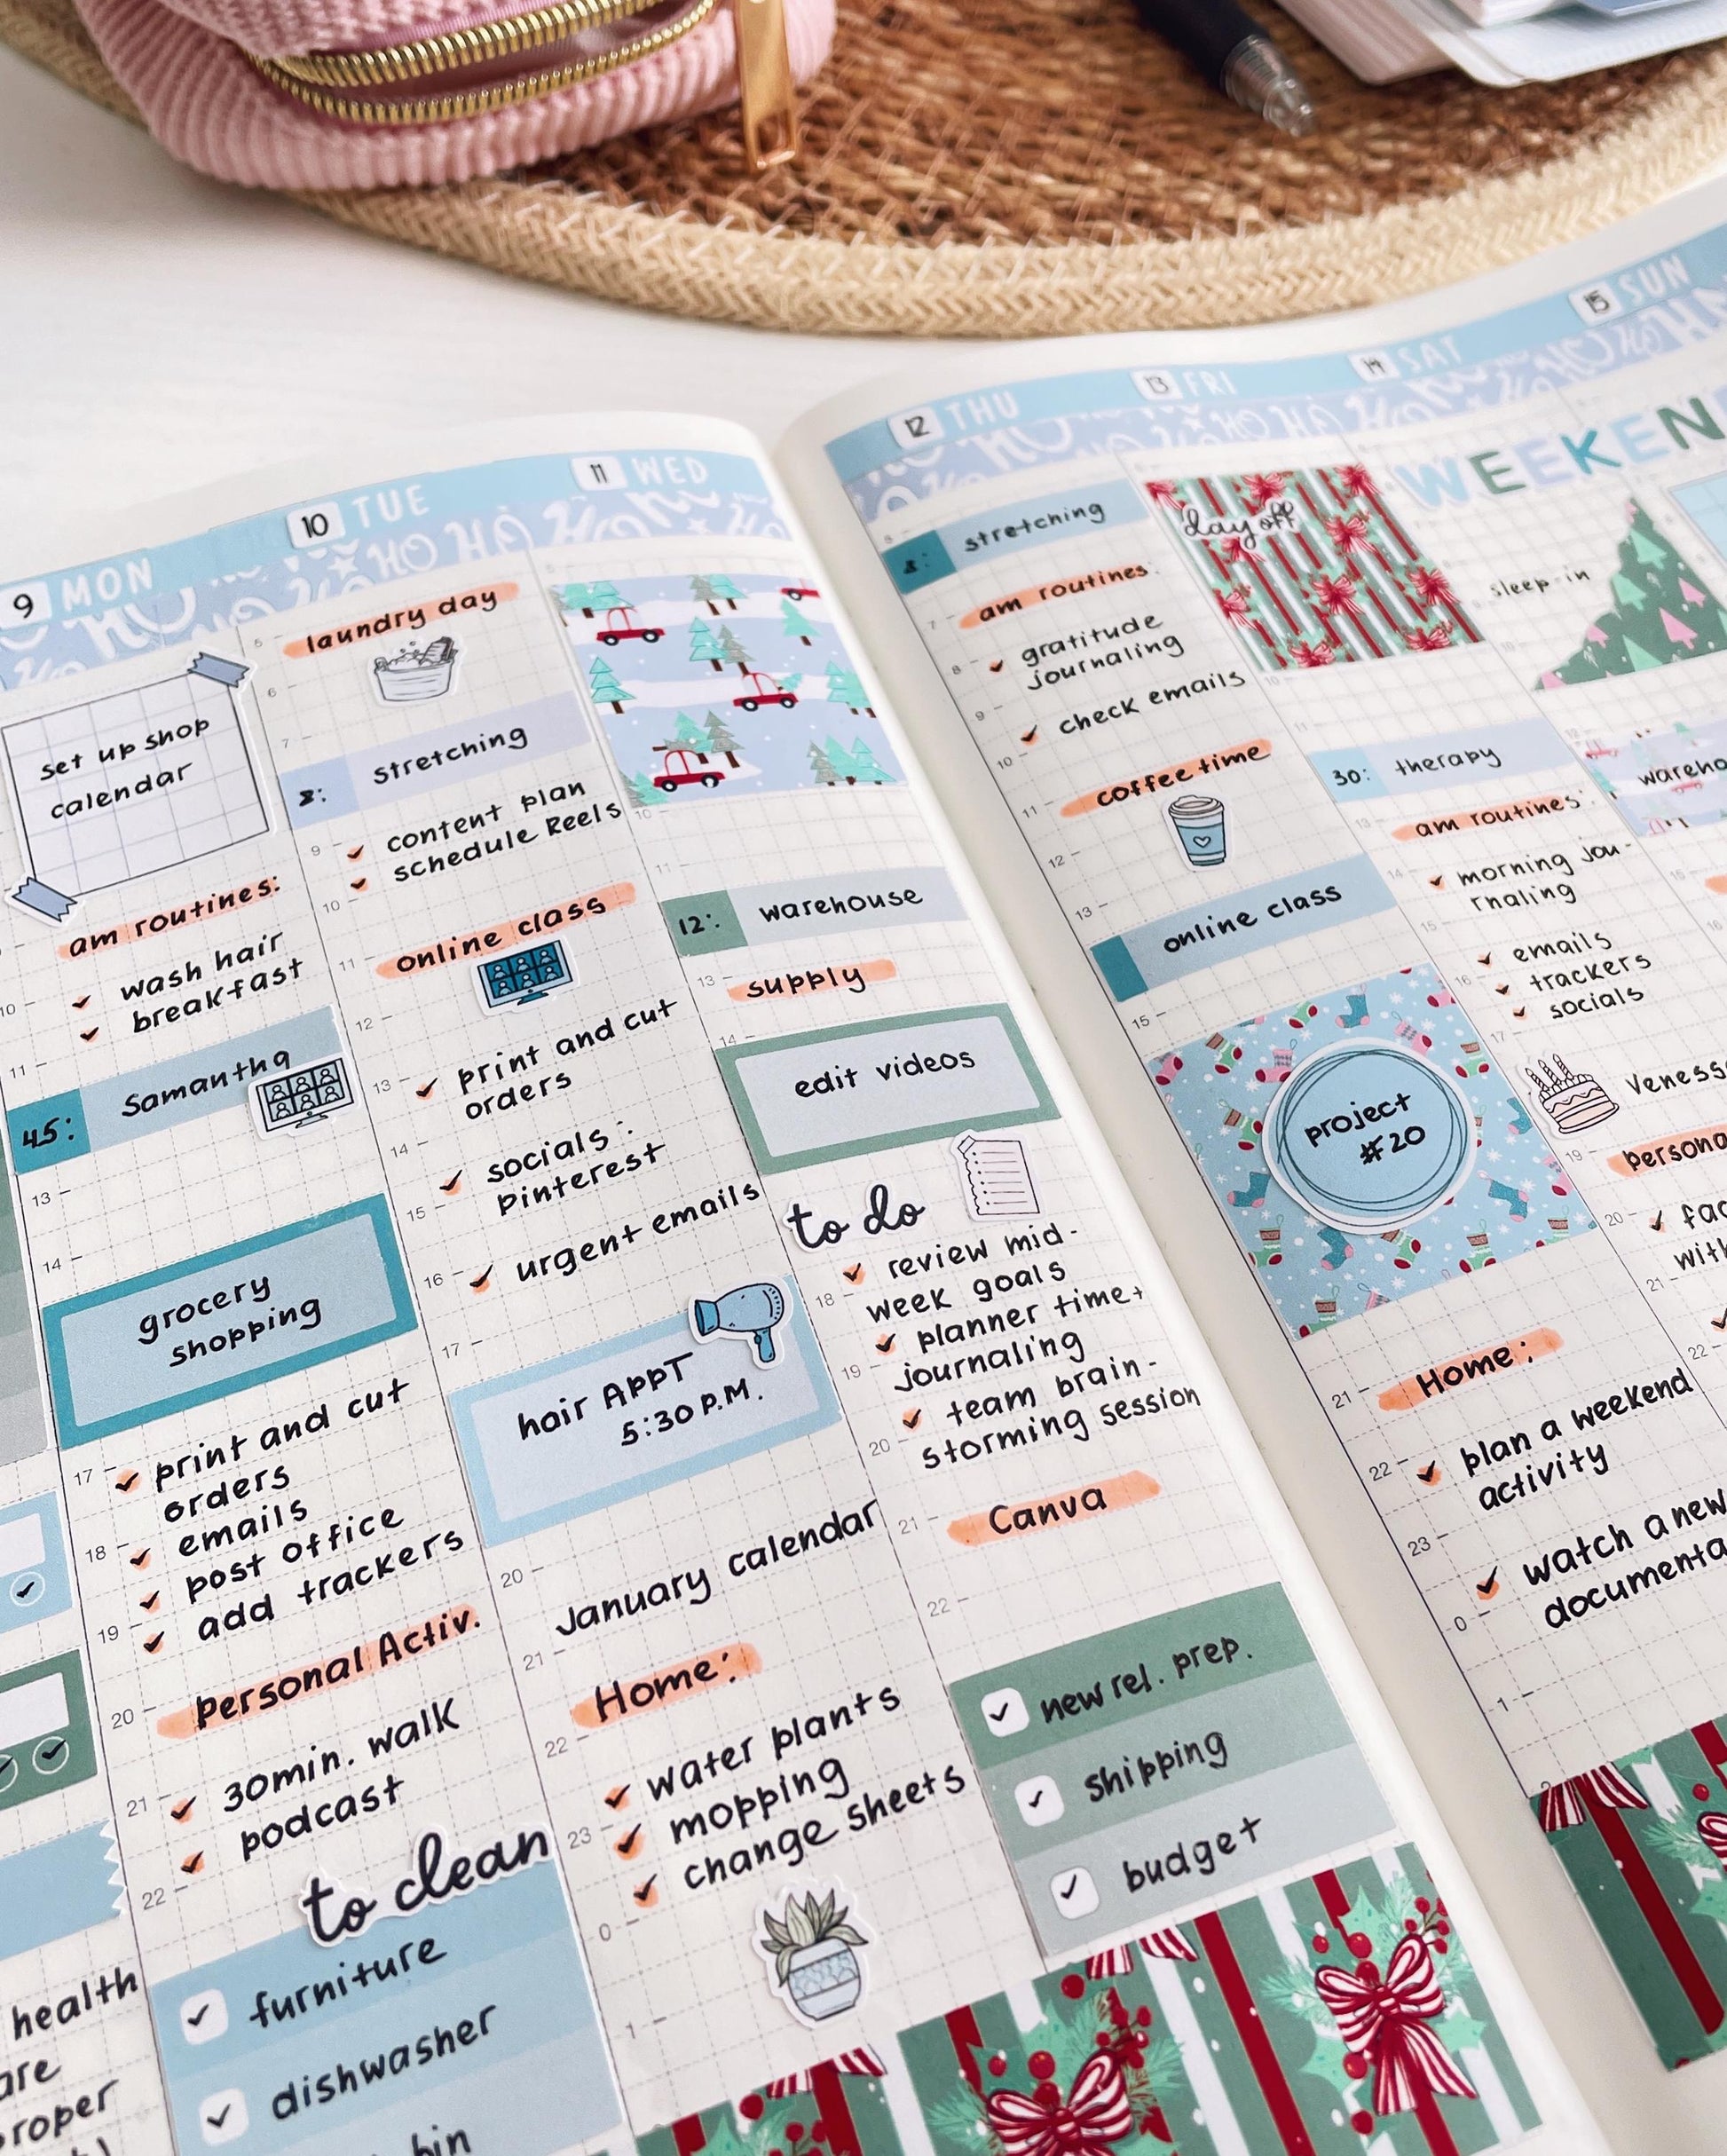 9 MON
set up shop
calendar
am routines:
wash hair
breakfast
10
11
45: Samantha
13
14
grocery
shopping
17
print and cut
orders
18
emails
post office
19
add trackers
20
Personal Activ.
21
30min. walk
podcast
22
to clean
furniture
dishwasher
bin
health
10 TUE
5
laundry day
6
7
8: stretching
9
content plan
10
schedule Reels
11
online class
12
13
print and cut
orders
14
socials:
pinterest
15
16
urgent emails
17
hair APPT
5:30 P.M.
20
January calendar
21
Home:
22
water plants
mopping
23
change sheets
0
1
11 WED
10
11
12: warehouse
13
supply
14
edit videos
to do
review mid-
18
week goals
planner time+
19
journaling
team brain-
20
storming session
21
Canva
22
new rel. prep.
shipping
budget
12 THU
8: stretching
7
am routines
8
gratitude
journaling
9
10
check emails
11
coffee time
12
13
online class
15
project
#20
21
Home:
22
plan a weekend
activity
23
watch a new
0
documenta
1
13 FRI
day off
10
11
30: therapy
13
am routines:
14
morning jou-
rnaling
15
16
emails
trackers
socials
17
Veness
19
persona
20
fac
with
21
22
14 SAT
15 SUN
WEEKEN
sleep-in
wareho